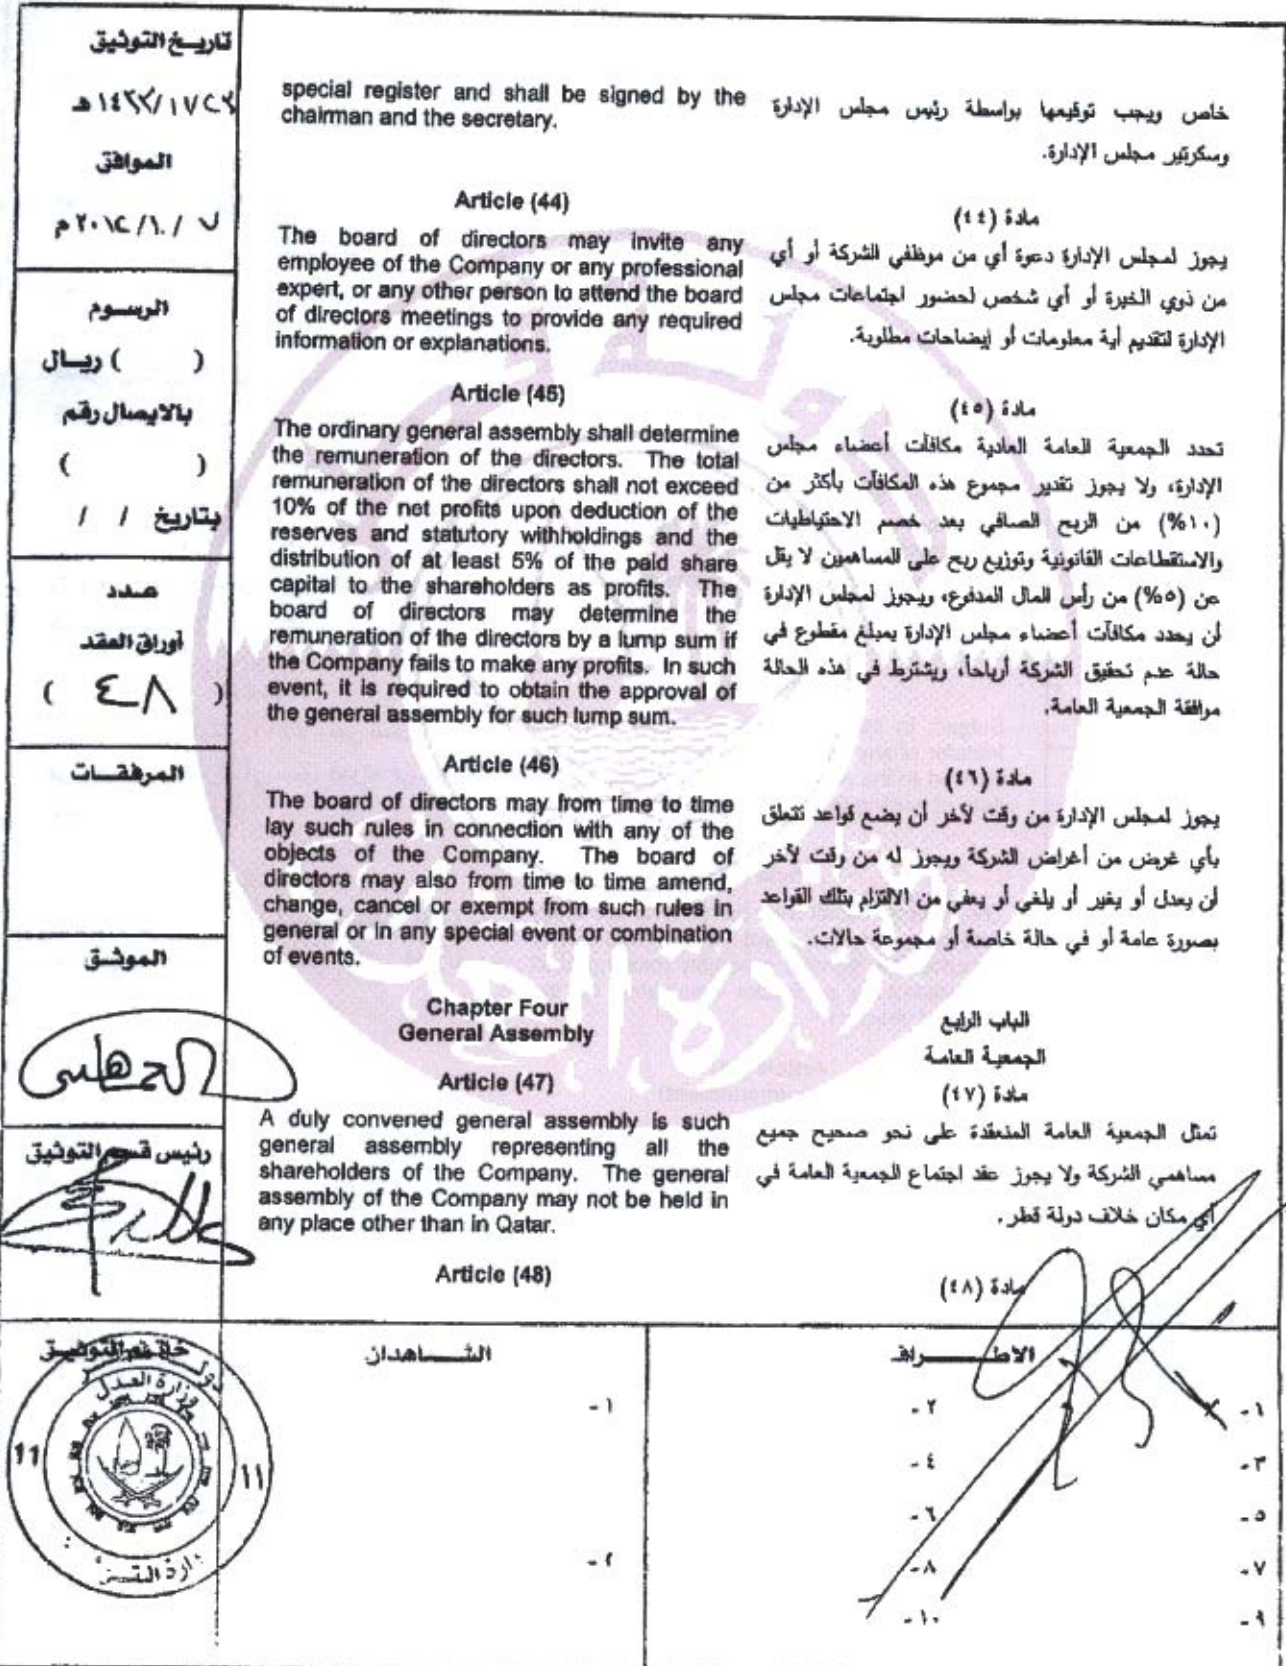 تاريخ التوثيق
الموافق
الرسوم
(        ) ريال
بالايصال رقم
(        )
بتاريخ / /
عدد
أوراق العقد
( ٤٨ )
المرفقات
الموثق
رئيس قسم التوثيق
special register and shall be signed by the
chairman and the secretary.
Article (44)
The board of directors may invite any
employee of the Company or any professional
expert, or any other person to attend the board
of directors meetings to provide any required
information or explanations.
Article (45)
The ordinary general assembly shall determine
the remuneration of the directors. The total
remuneration of the directors shall not exceed
10% of the net profits upon deduction of the
reserves and statutory withholdings and the
distribution of at least 5% of the paid share
capital to the shareholders as profits. The
board of directors may determine the
remuneration of the directors by a lump sum if
the Company fails to make any profits. In such
event, it is required to obtain the approval of
the general assembly for such lump sum.
Article (46)
The board of directors may from time to time
lay such rules in connection with any of the
objects of the Company. The board of
directors may also from time to time amend,
change, cancel or exempt from such rules in
general or in any special event or combination
of events.
Chapter Four
General Assembly
Article (47)
A duly convened general assembly is such
general assembly representing all the
shareholders of the Company. The general
assembly of the Company may not be held in
any place other than in Qatar.
Article (48)
خاص ويجب توقيعها بواسطة رئيس مجلس الإدارة
وسكرتير مجلس الإدارة.
مادة (٤٤)
يجوز لمجلس الإدارة دعوة أي من موظفي الشركة أو أي
من ذوي الخبرة أو أي شخص لحضور اجتماعات مجلس
الإدارة لتقديم أية معلومات أو إيضاحات مطلوبة.
مادة (٤٥)
تحدد الجمعية العامة العادية مكافآت أعضاء مجلس
الإدارة، ولا يجوز تقدير مجموع هذه المكافآت بأكثر من
(١٠%) من الربح الصافي بعد خصم الاحتياطيات
والاستقطاعات القانونية وتوزيع ربح على المساهمين لا يقل
عن (٥%) من رأس المال المدفوع، ويجوز لمجلس الإدارة
أن يحدد مكافآت أعضاء مجلس الإدارة بمبلغ مقطوع في
حالة عدم تحقيق الشركة أرباحاً، ويشترط في هذه الحالة
موافقة الجمعية العامة.
مادة (٤٦)
يجوز لمجلس الإدارة من وقت لآخر أن يضع قواعد تتعلق
بأي غرض من أغراض الشركة ويجوز له من وقت لآخر
أن يعدل أو يغير أو يلغي أو يعفي من الالتزام بتلك القواعد
بصورة عامة أو في حالة خاصة أو مجموعة حالات.
الباب الرابع
الجمعية العامة
مادة (٤٧)
تمثل الجمعية العامة المنعقدة على نحو صحيح جميع
مساهمي الشركة ولا يجوز عقد اجتماع الجمعية العامة في
أي مكان خلاف دولة قطر.
مادة (٤٨)
الاطراف
١-
٢-
٣-
٤-
٥-
٦-
٧-
٨-
٩-
١٠-
الشاهدان
١-
٢-
خاتم التوثيق
وزارة العدل
11
11